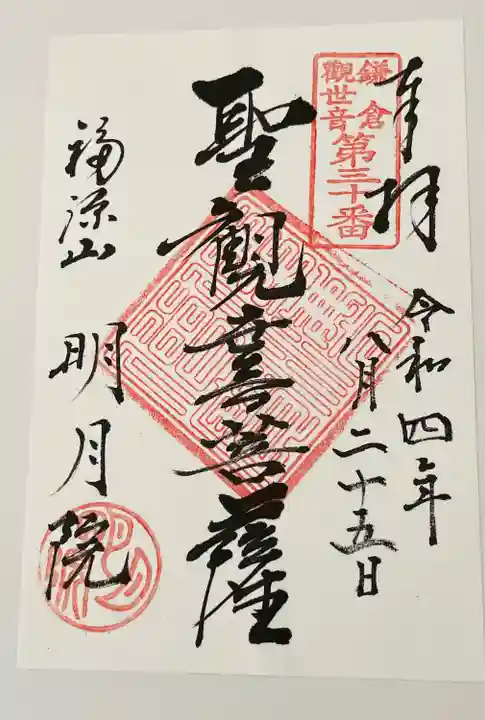 奉拝
鎌倉
觀世音
第三十番
令和四年
八月二十五日
聖観世音菩薩
福源山
明月院